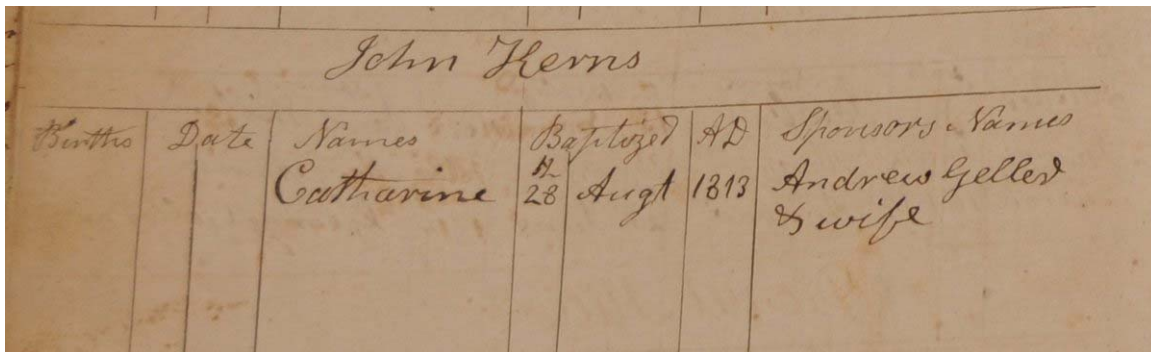 John Kerns
Births Date Names Baptized AD Sponsors Names
Catharine 28th Augt 1813 Andrew Geller
& wife